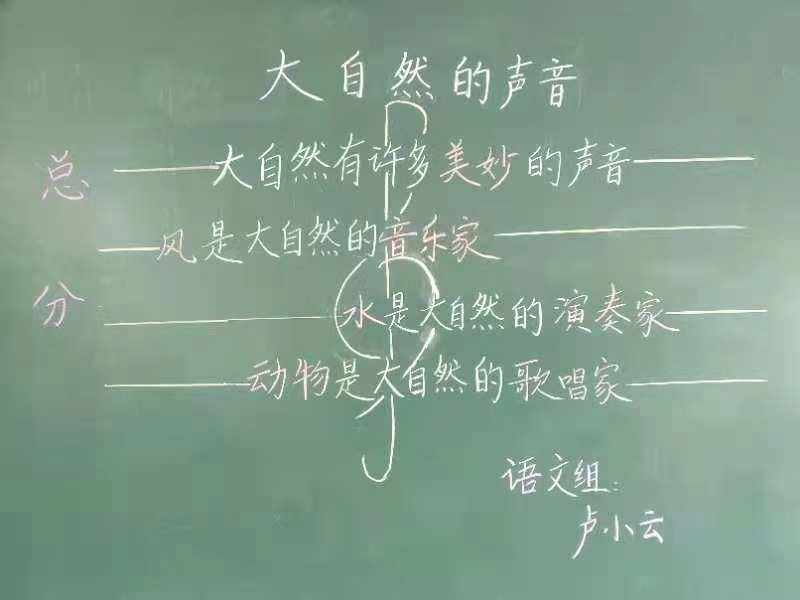 大自然的声音
总
大自然有许多美妙的声音
风是大自然的音乐家
分
水是大自然的演奏家
动物是大自然的歌唱家
语文组：
卢小云